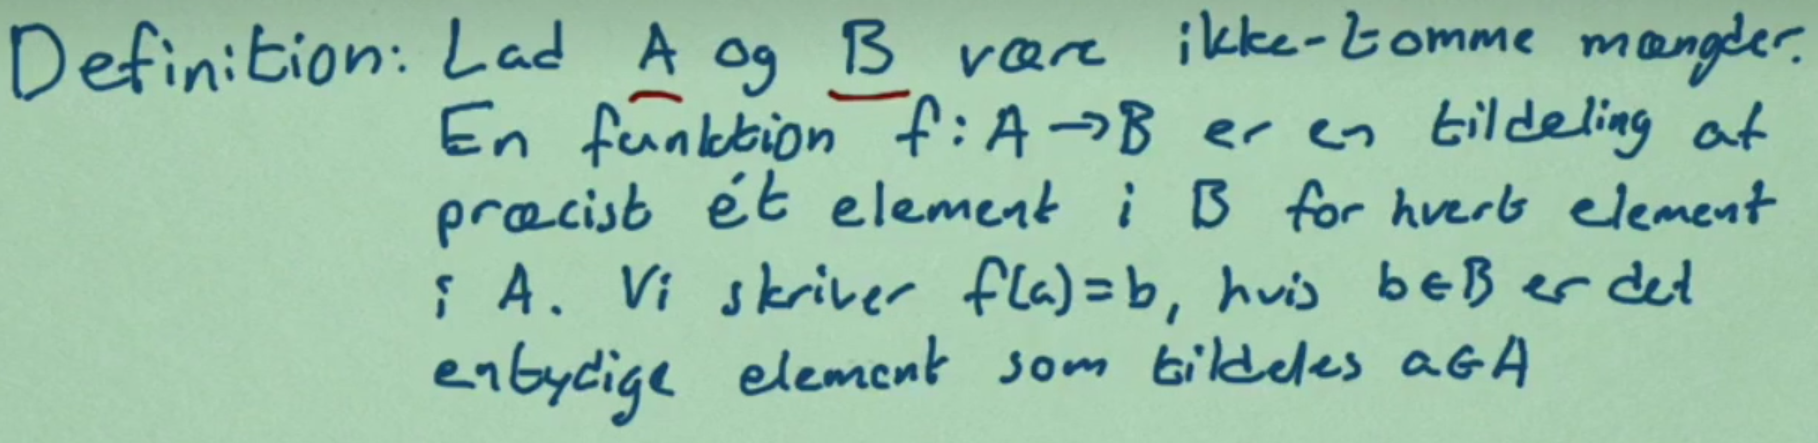 Definition: Lad A og B være ikke-tomme mængder.
En funktion f: A → B er en tildeling af
præcist ét element i B for hvert element
i A. Vi skriver f(a) = b, hvis b ∈ B er det
entydige element som tildeles a ∈ A